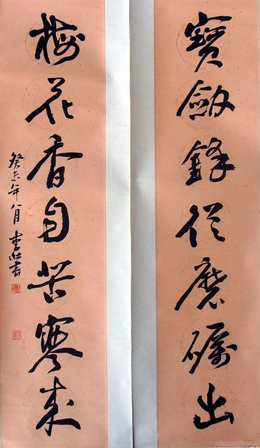 寶劍鋒從磨礪出
梅花香自苦寒來
癸未年八月 李壯書